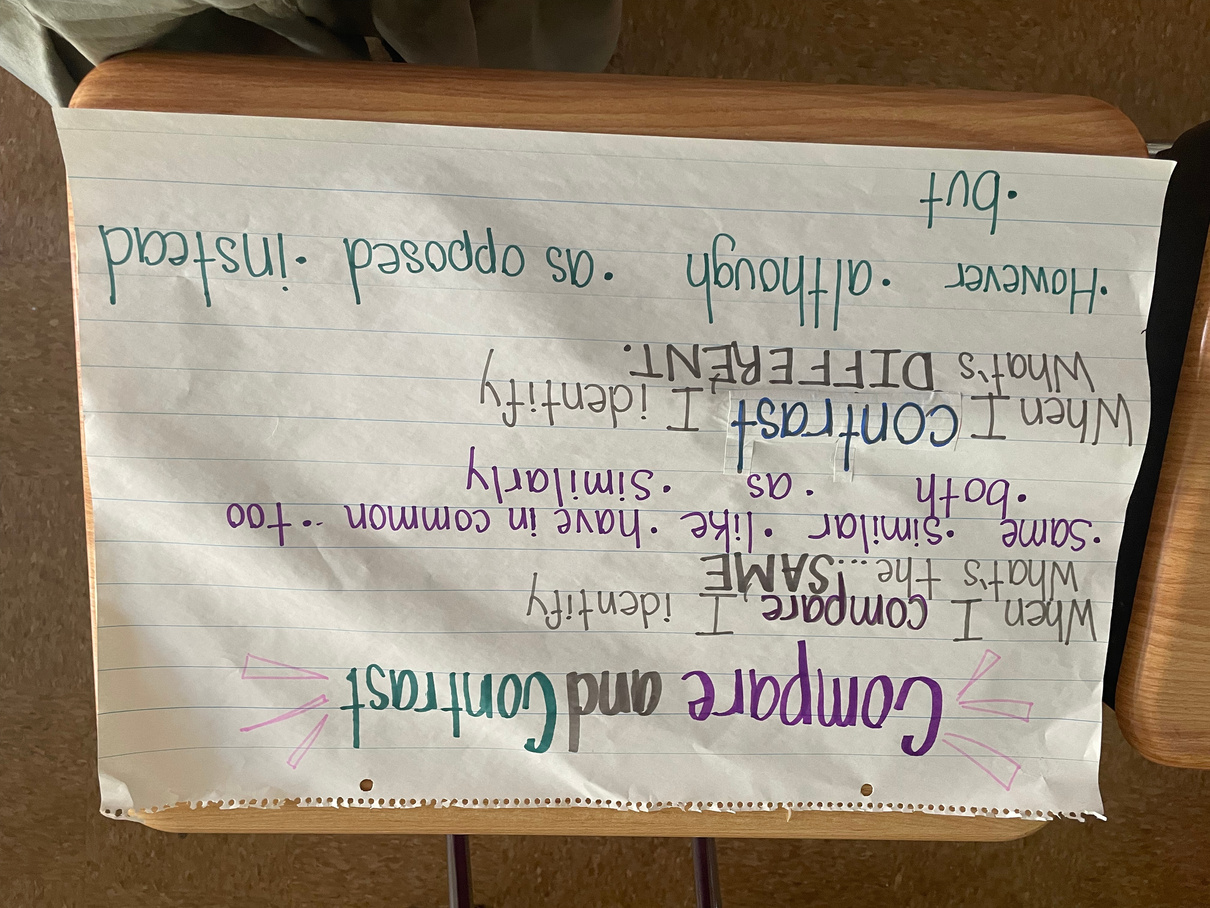 Compare and Contrast
When I compare, I identify
what's the...SAME
• same • similar • like • have in common • too
• both • as • Similarly
When I contrast, I identify
What's DIFFERENT.
• However • although • as opposed • instead
• but